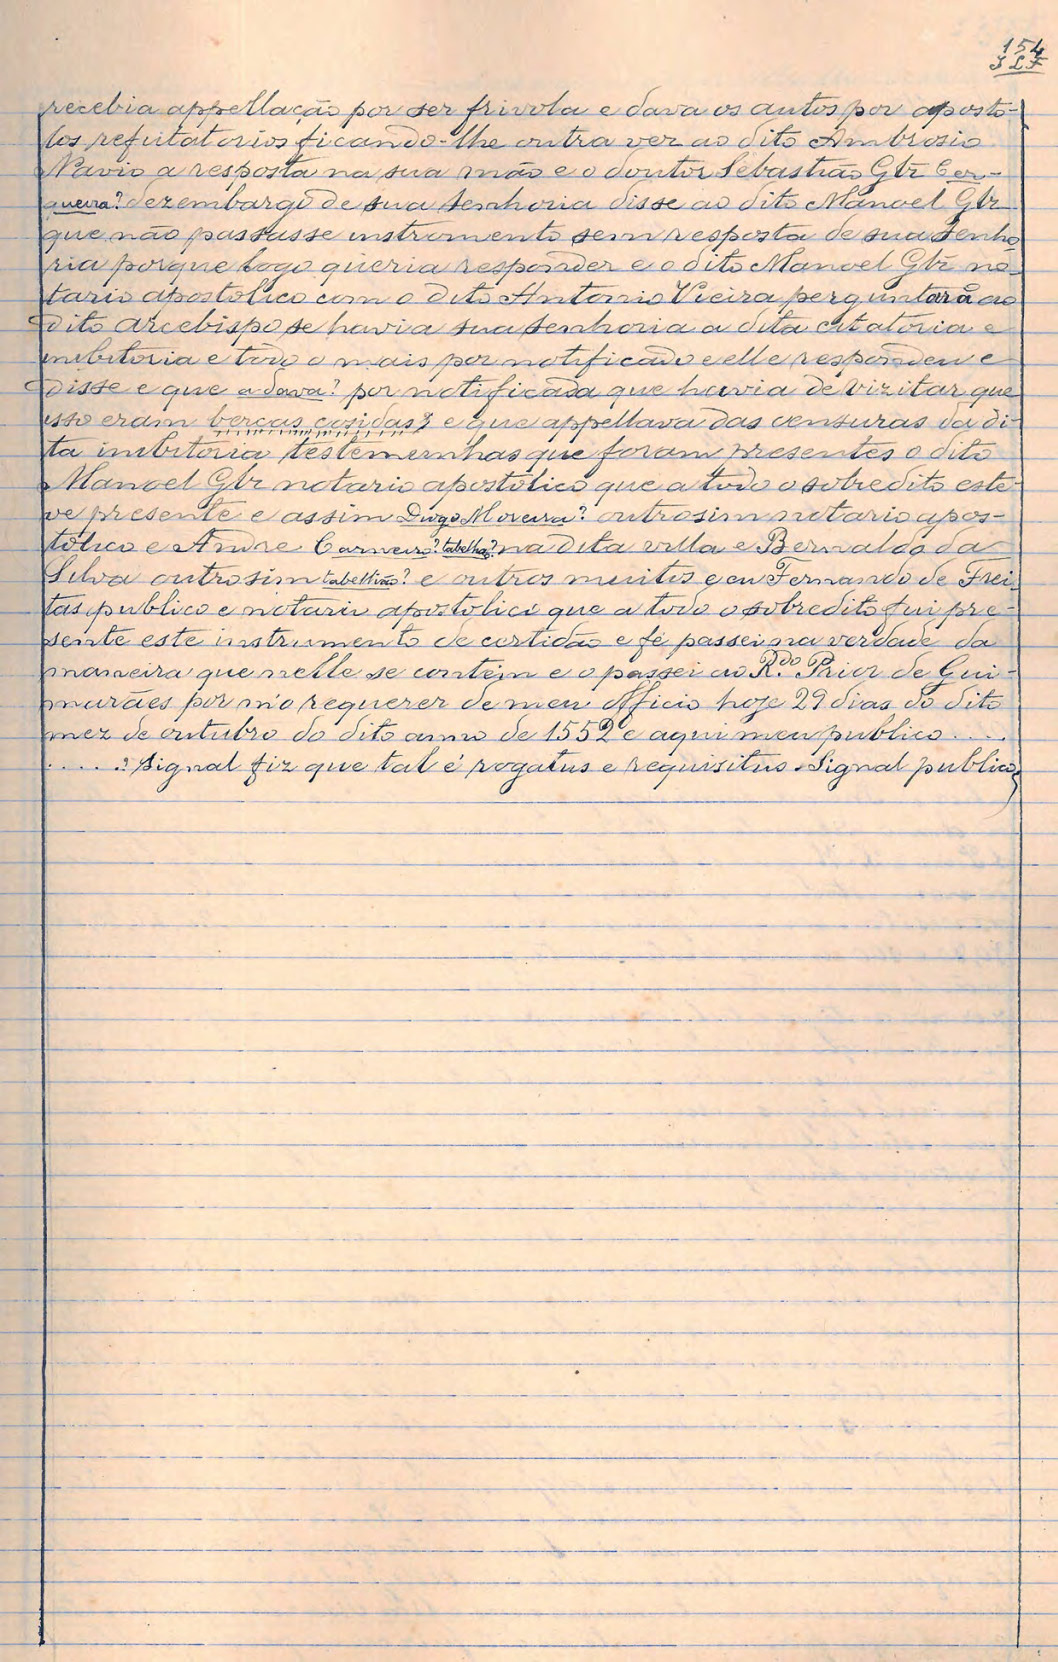 154
recebia appellação por ser frivola e dava os autos por aposto-
los refutatorios ficando-lhe outra vez ao dito Ambrosio
Navio a resposta na sua mão e o doutor Sebastião Glz Cer-
queira? dezembargo de sua senhoria disse ao dito Manoel Glz
que não passasse instromento sem resposta de sua Senho
ria porque logo queria responder e o dito Manoel Glz no-
tario apostolico com o dito Antonio Vieira perguntará ao
dito arcebispo se havia sua senhoria a dita citatoria e
inibitoria e todo o mais por notificado e elle respondeu e
disse e que a dava? por notificada que havia de vizitar que
isso eram berças cosidas? e que appellava das censuras da di-
ta inibitoria testemunhas que foram presentes o dito
Manoel Glz notario apostolico que a todo o sobredito este-
ve presente e assim Diogo Moreira? outrosim notario apos-
tolico e Andre Carneiro? tabelha? na dita villa e Bernaldo da
Silva outrosim tabellião? e outros muitos e eu Fernando de Frei
tas publico e notario apostolico que a todo o sobredito fui pre-
sente este instrumento de certidão e fé passei na verdade da
maneira que nelle se contém e o passei ao R.do Prior de Gui-
marães por m'o requerer de meu officio hoje 29 dias do dito
mez de outubro do dito anno de 1552 e aqui meu publico ....
.....? Signal fiz que tal é rogatus e requisitus. Signal publico